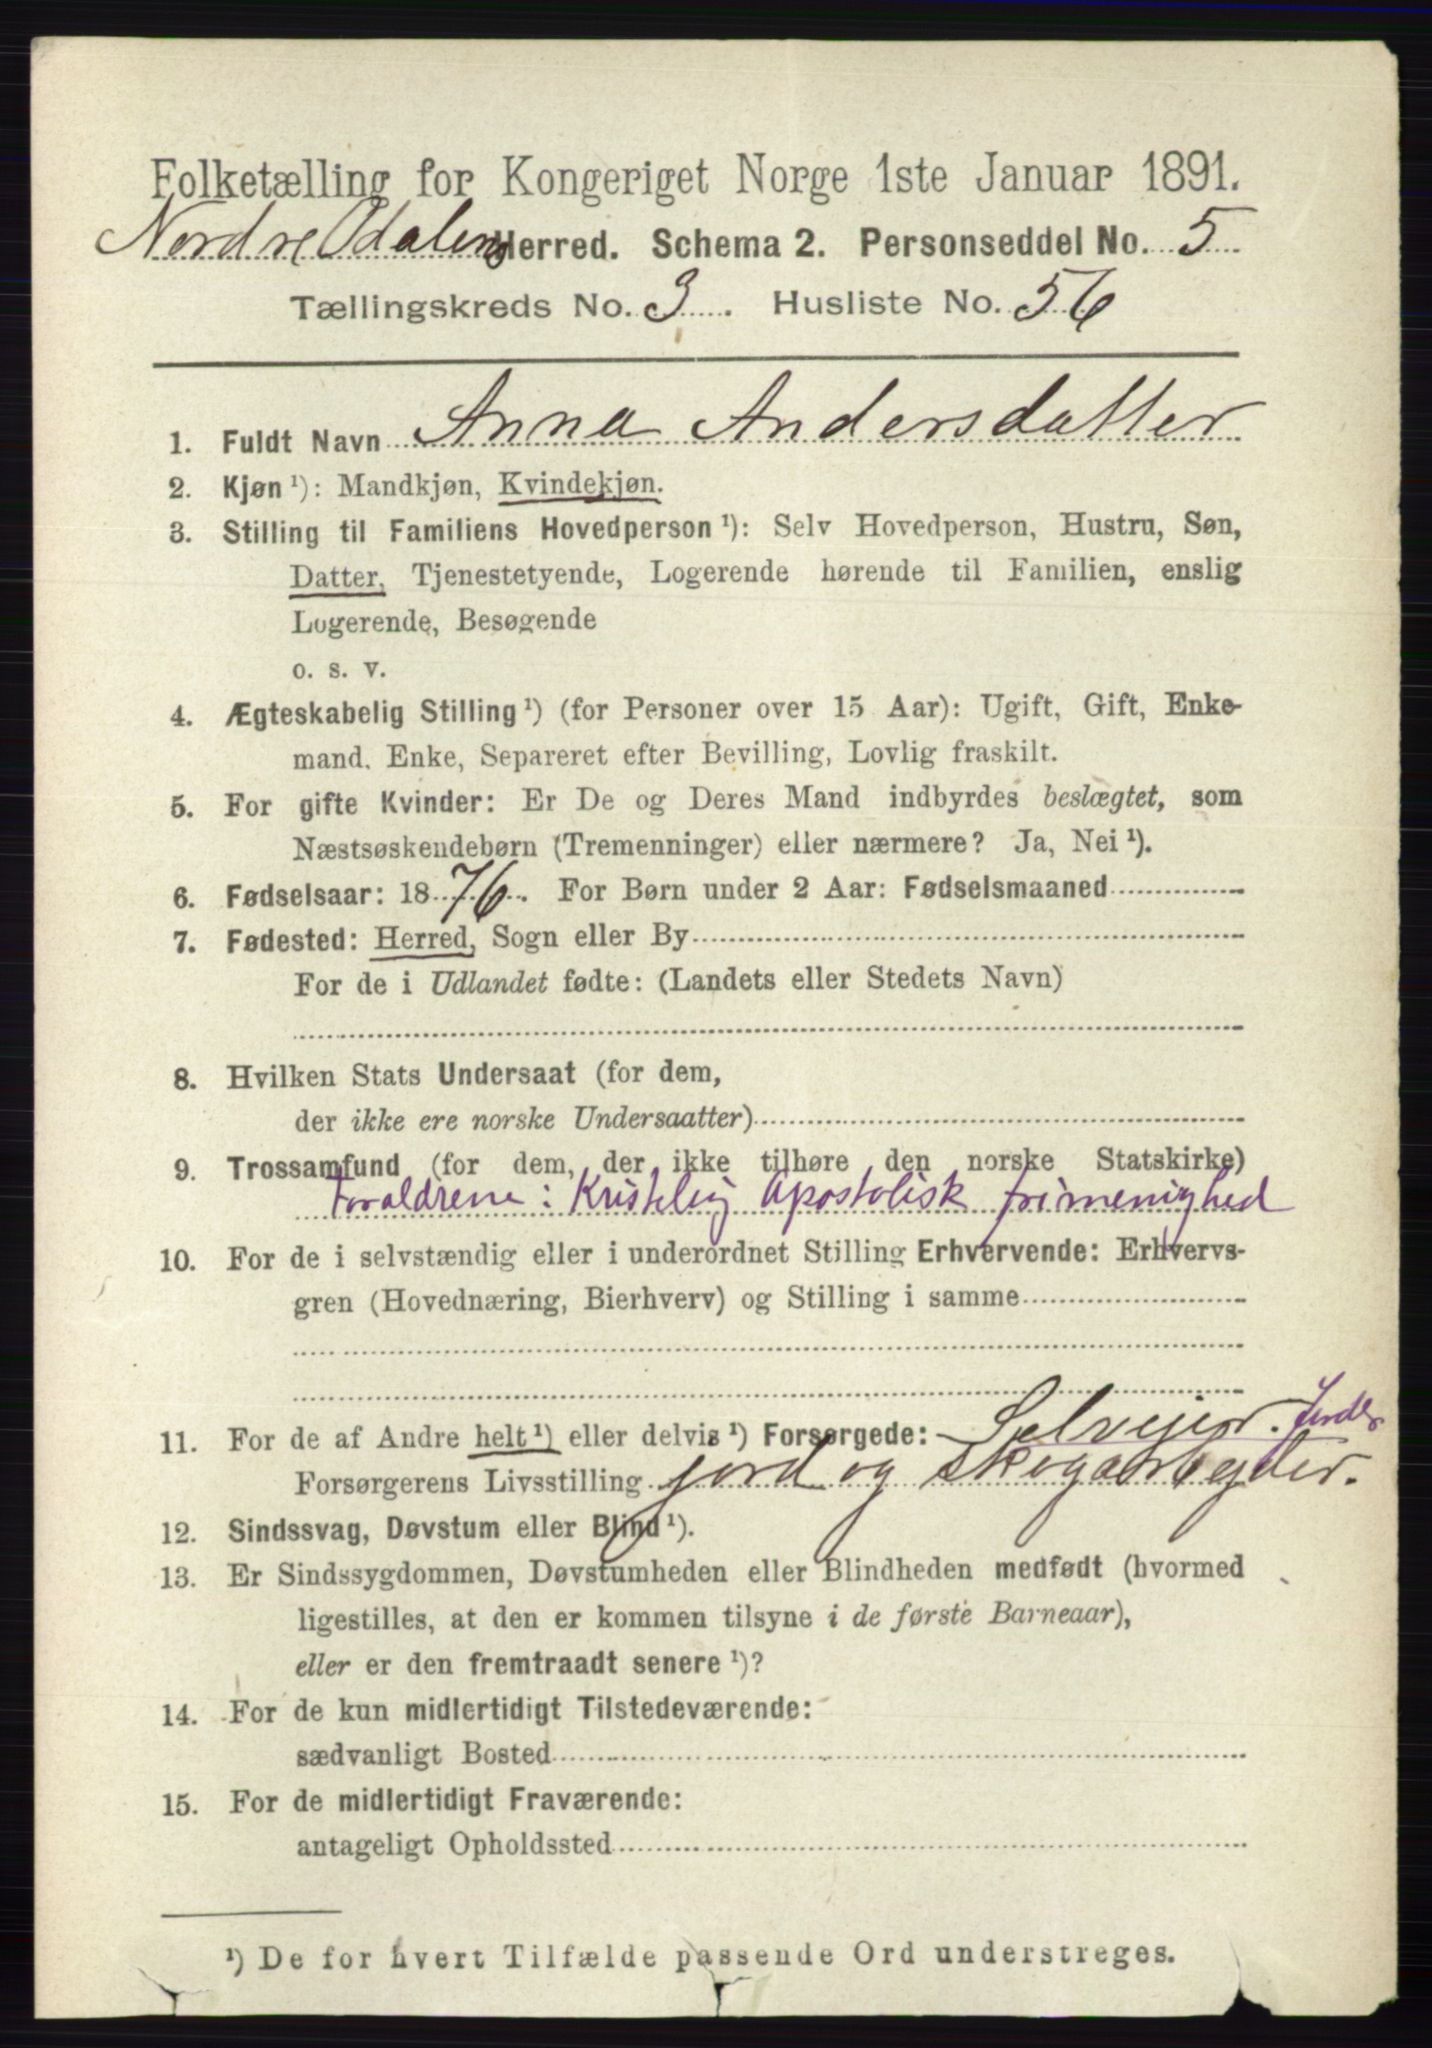 Folketælling for Kongeriget Norge 1ste Januar 1891.
Nordre Odalens Herred. Schema 2. Personseddel No. 5
Tællingskreds No. 3. Husliste No. 56
1. Fuldt Navn Anna Andersdatter
2. Kjøn ¹): Mandkjøn, Kvindekjøn.
3. Stilling til Familiens Hovedperson ¹): Selv Hovedperson, Hustru, Søn,
Datter, Tjenestetyende, Logerende hørende til Familien, enslig
Logerende, Besøgende
o. s. v.
4. Ægteskabelig Stilling ¹) (for Personer over 15 Aar): Ugift, Gift, Enke-
mand. Enke, Separeret efter Bevilling, Lovlig fraskilt.
5. For gifte Kvinder: Er De og Deres Mand indbyrdes beslægtet, som
Næstsøskendebørn (Tremenninger) eller nærmere? Ja, Nei ¹).
6. Fødselsaar: 1876. For Børn under 2 Aar: Fødselsmaaned
7. Fødested: Herred, Sogn eller By
For de i Udlandet fødte: (Landets eller Stedets Navn)
8. Hvilken Stats Undersaat (for dem,
der ikke ere norske Undersaatter)
9. Trossamfund (for dem, der ikke tilhøre den norske Statskirke)
Foraldrene: Kristelig Apostolisk frimenighed
10. For de i selvstændig eller i underordnet Stilling Erhvervende: Erhvervs-
gren (Hovednæring, Bierhverv) og Stilling i samme
11. For de af Andre helt ¹) eller delvis ¹) Forsørgede: Selvejer.
Forsørgerens Livsstilling jord og Skogarbejder.
12. Sindssvag, Døvstum eller Blind ¹).
13. Er Sindssygdommen, Døvstumheden eller Blindheden medfødt (hvormed
ligestilles, at den er kommen tilsyne i de første Barneaar),
eller er den fremtraadt senere ¹)?
14. For de kun midlertidigt Tilstedeværende:
sædvanligt Bosted
15. For de midlertidigt Fraværende:
antageligt Opholdssted
¹) De for hvert Tilfælde passende Ord understreges.